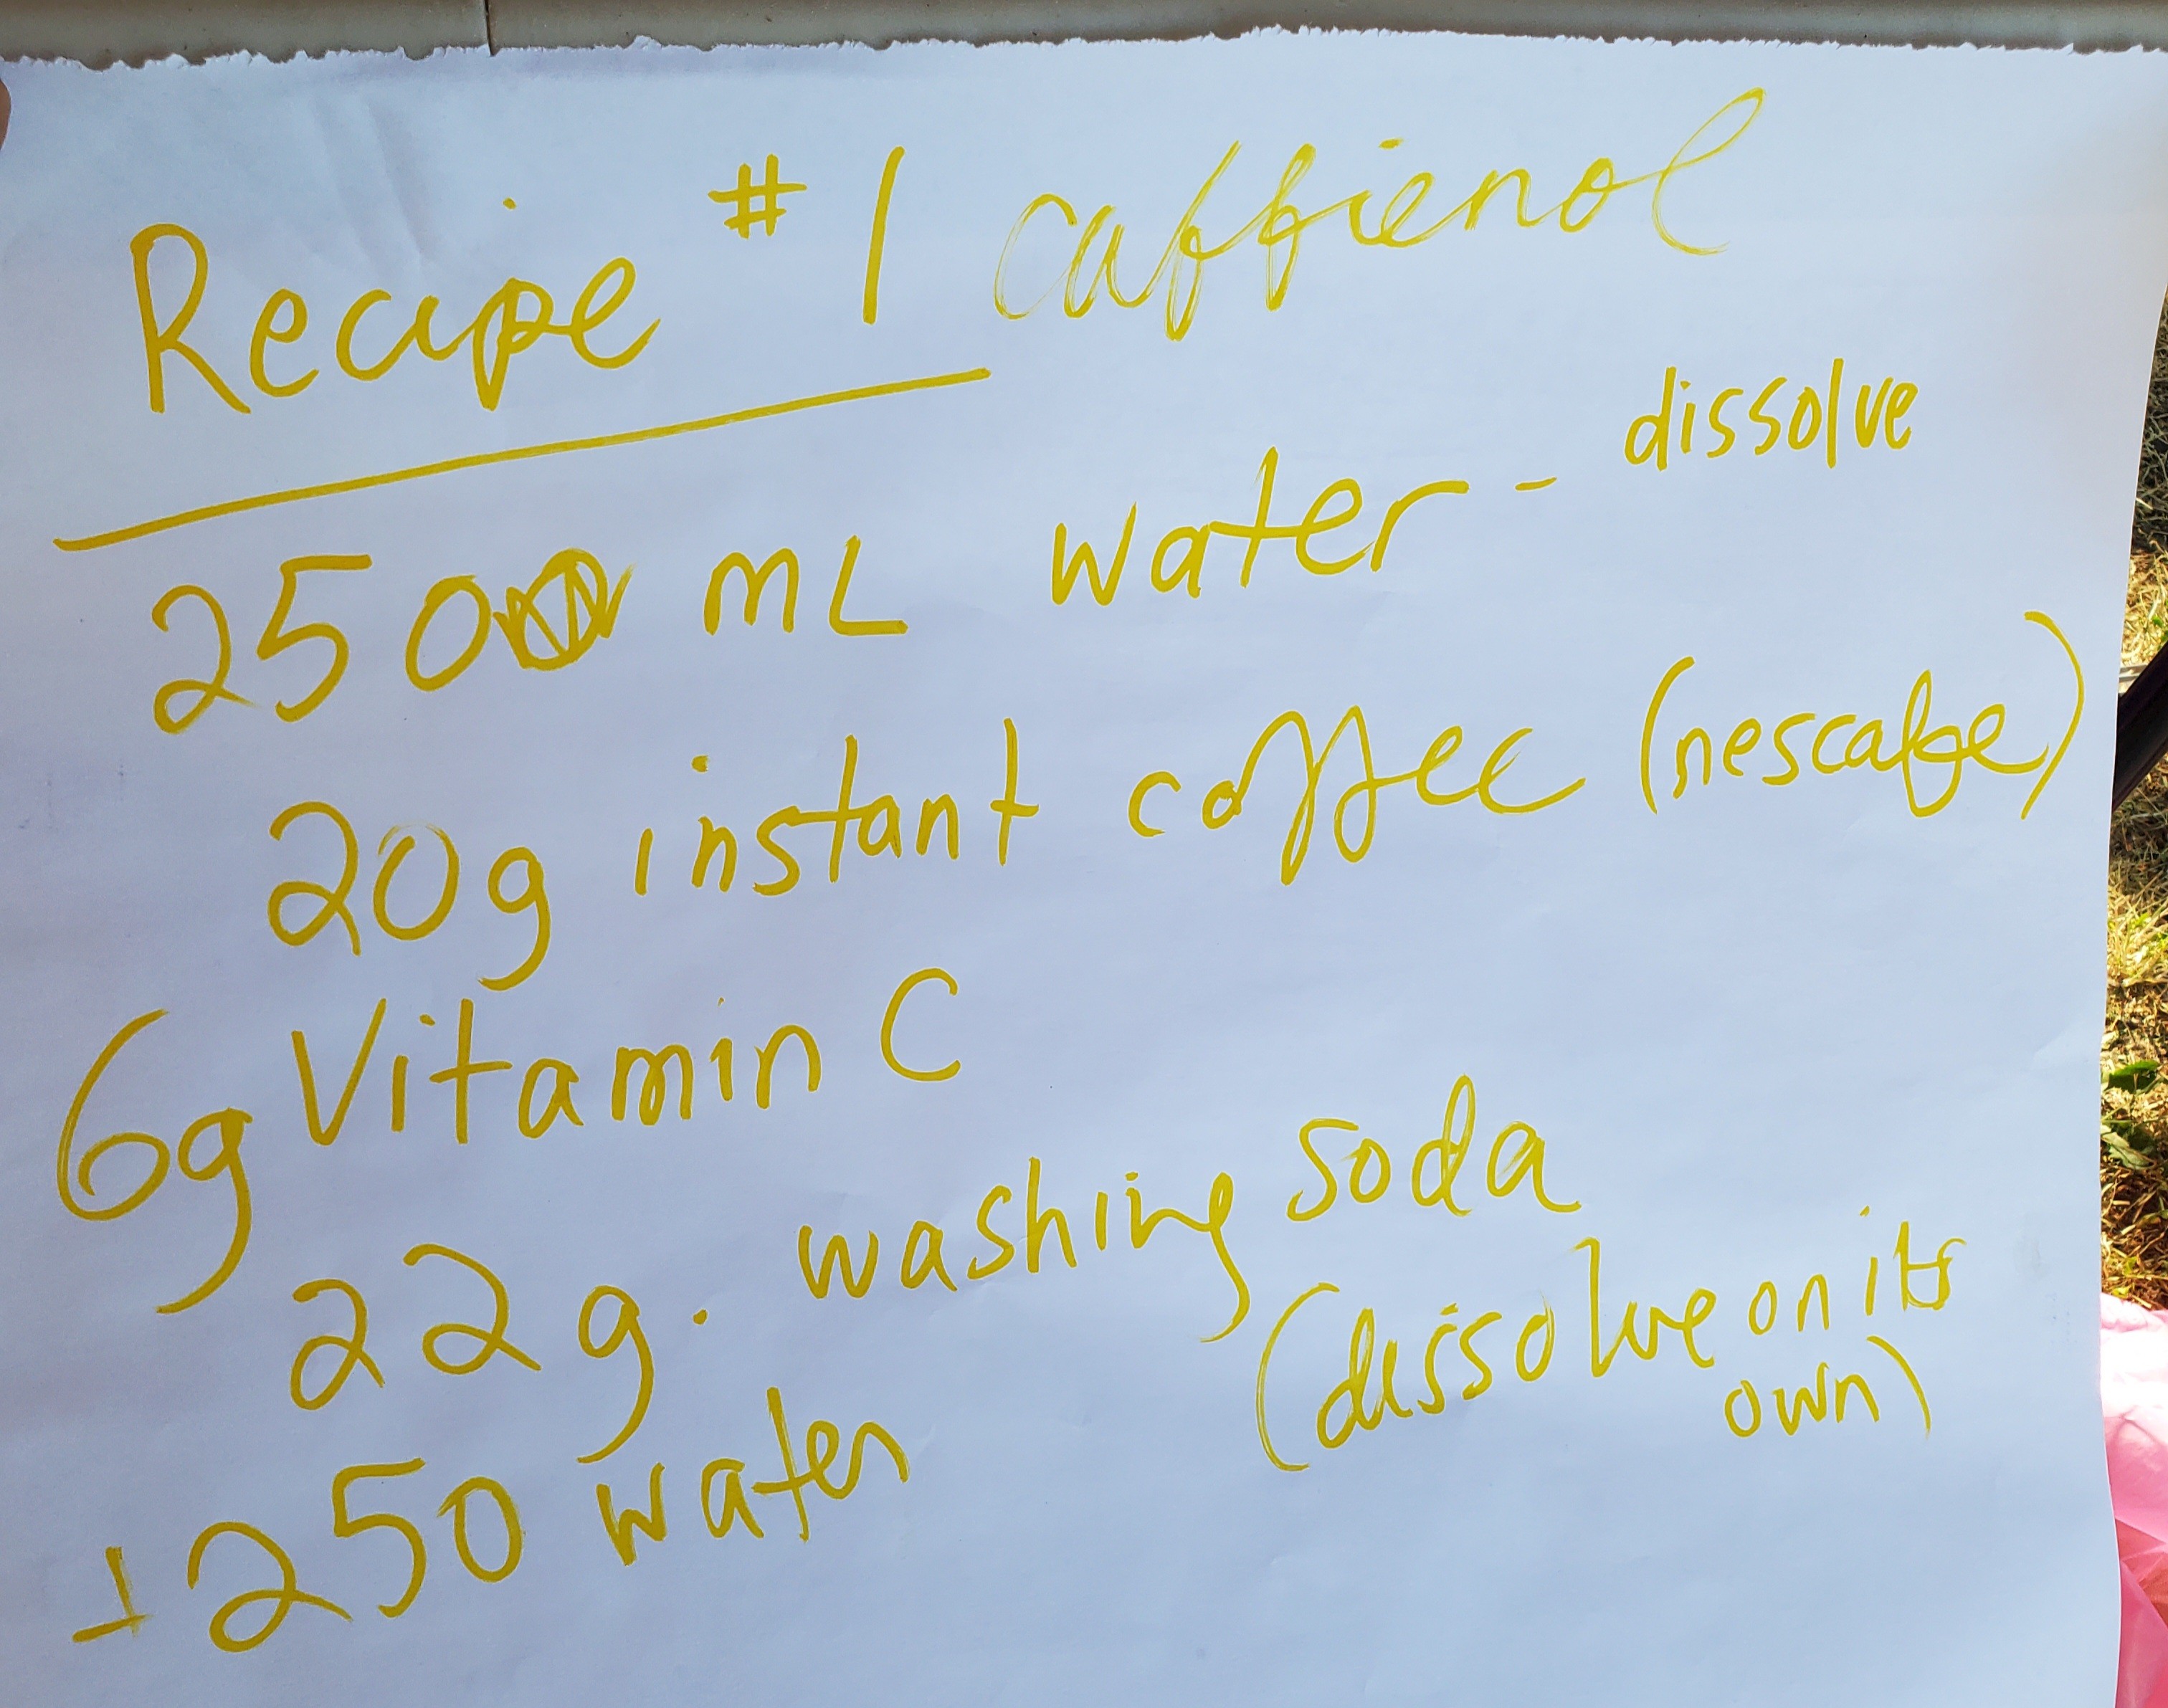 Recipe #1 caffienol
250 mL water - dissolve
20g instant coffee (nescafe)
6g Vitamin C
22g. washing soda
(dissolve on its
own)
+250 water